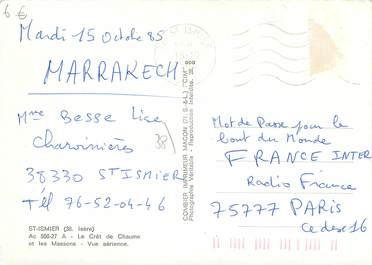 6 €
Mardi 15 Octobre 85
MARRAKECH
Mme Besse Lise
Charvinières
38/
38330 ST ISMIER
Tél 76-52-04-46
ST-ISMIER (38. Isère)
Ac 556-27 A - Le Crêt de Chaume
et les Massons - Vue aérienne.
COMBIER IMPRIMEUR MACON (71. S.-&-L.) "CIM"
Photographie Véritable - Reproduction Interdite.
ST ISMIER
Mot de Passe pour le
bout du Monde
FRANCE INTER
Radio France
75777 PARIS
Cedex 16